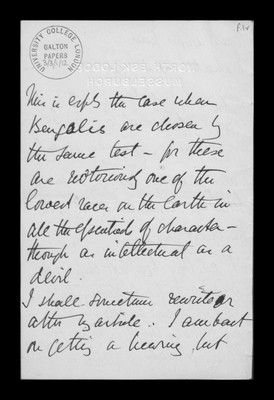 f.1v
UNIVERSITY COLLEGE LONDON
GALTON
PAPERS
This is esply the case when
Bengalis are chosen by
the same test – for these
are notoriously one of the
lowest races on the Earth in
all the essentials of character –
though as intellectual as a
devil.
I shall sometime rewrite or
alter my article. I am bent
on getting a hearing, but